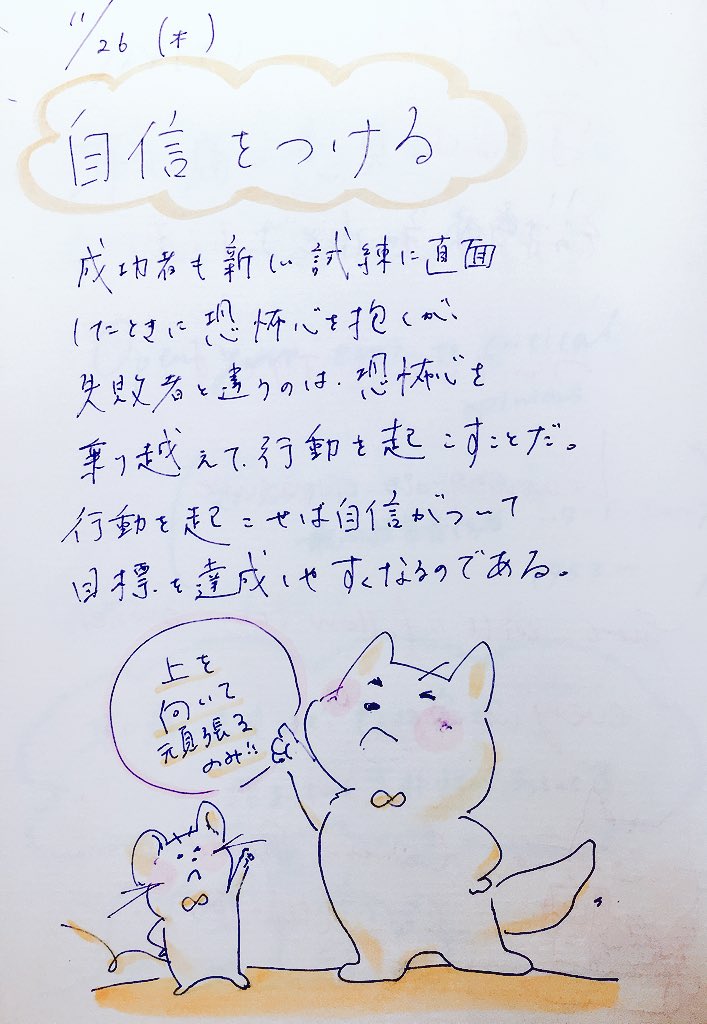 11/26 (木)
自信をつける
成功者も新しい試練に直面
したときに恐怖心を抱くが、
失敗者と違うのは、恐怖心を
乗り越えて、行動を起こすことだ。
行動を起こせば自信がついて
目標を達成しやすくなるのである。
上を
向いて
頑張る
のみ!!